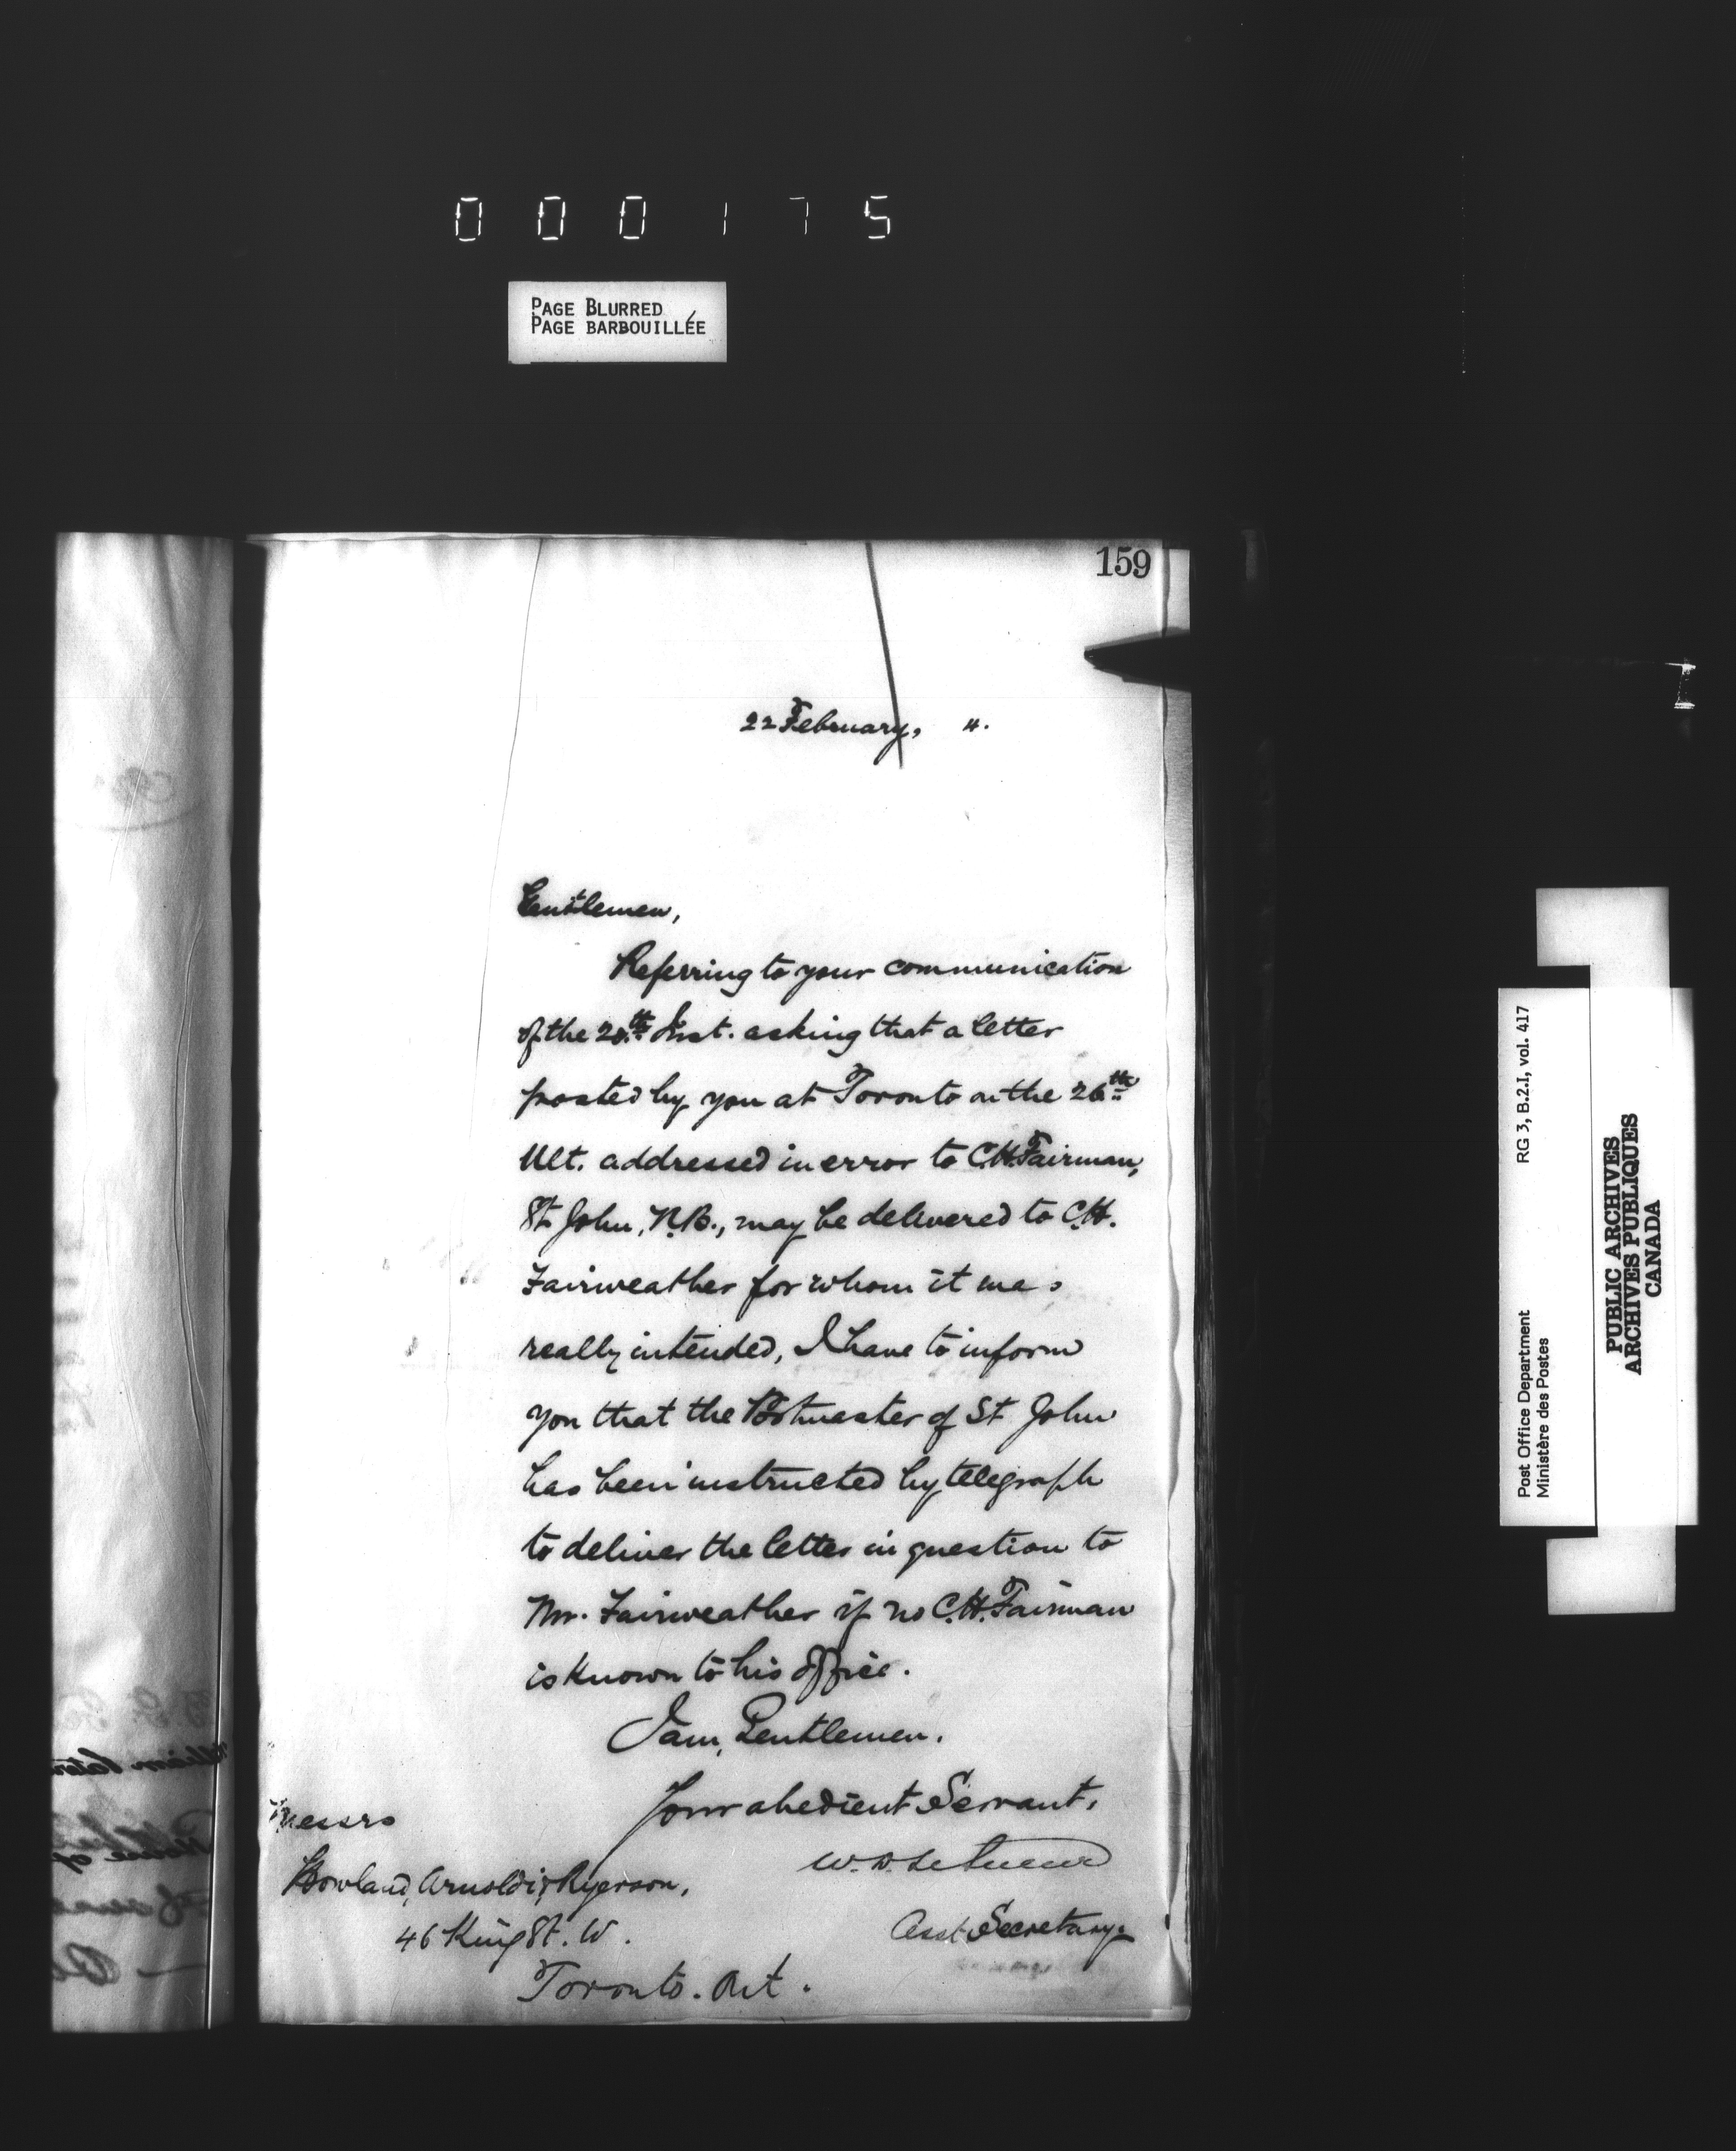 000175
PAGE BLURRED
PAGE BARBOUILLÉE
159
22 February, 4.
Gentlemen,
Referring to your communication
of the 20th Inst. asking that a letter
posted by you at Toronto on the 26th
Ult. addressed in error to C.H. Fairman,
St John, N.B., may be delivered to C.H.
Fairweather for whom it was
really intended, I have to inform
you that the Postmaster of St John
has been instructed by telegraph
to deliver the letter in question to
Mr. Fairweather if no C.H. Fairman
is known to his office.
I am, Gentlemen.
Your obedient Servant,
W. D. LeSueur
Asst Secretary.
Messrs
Howland, Arnoldi & Ryerson,
46 King St. W.
Toronto. Ont.
RG 3, B.2.I, vol. 417
Post Office Department
Ministère des Postes
PUBLIC ARCHIVES
ARCHIVES PUBLIQUES
CANADA